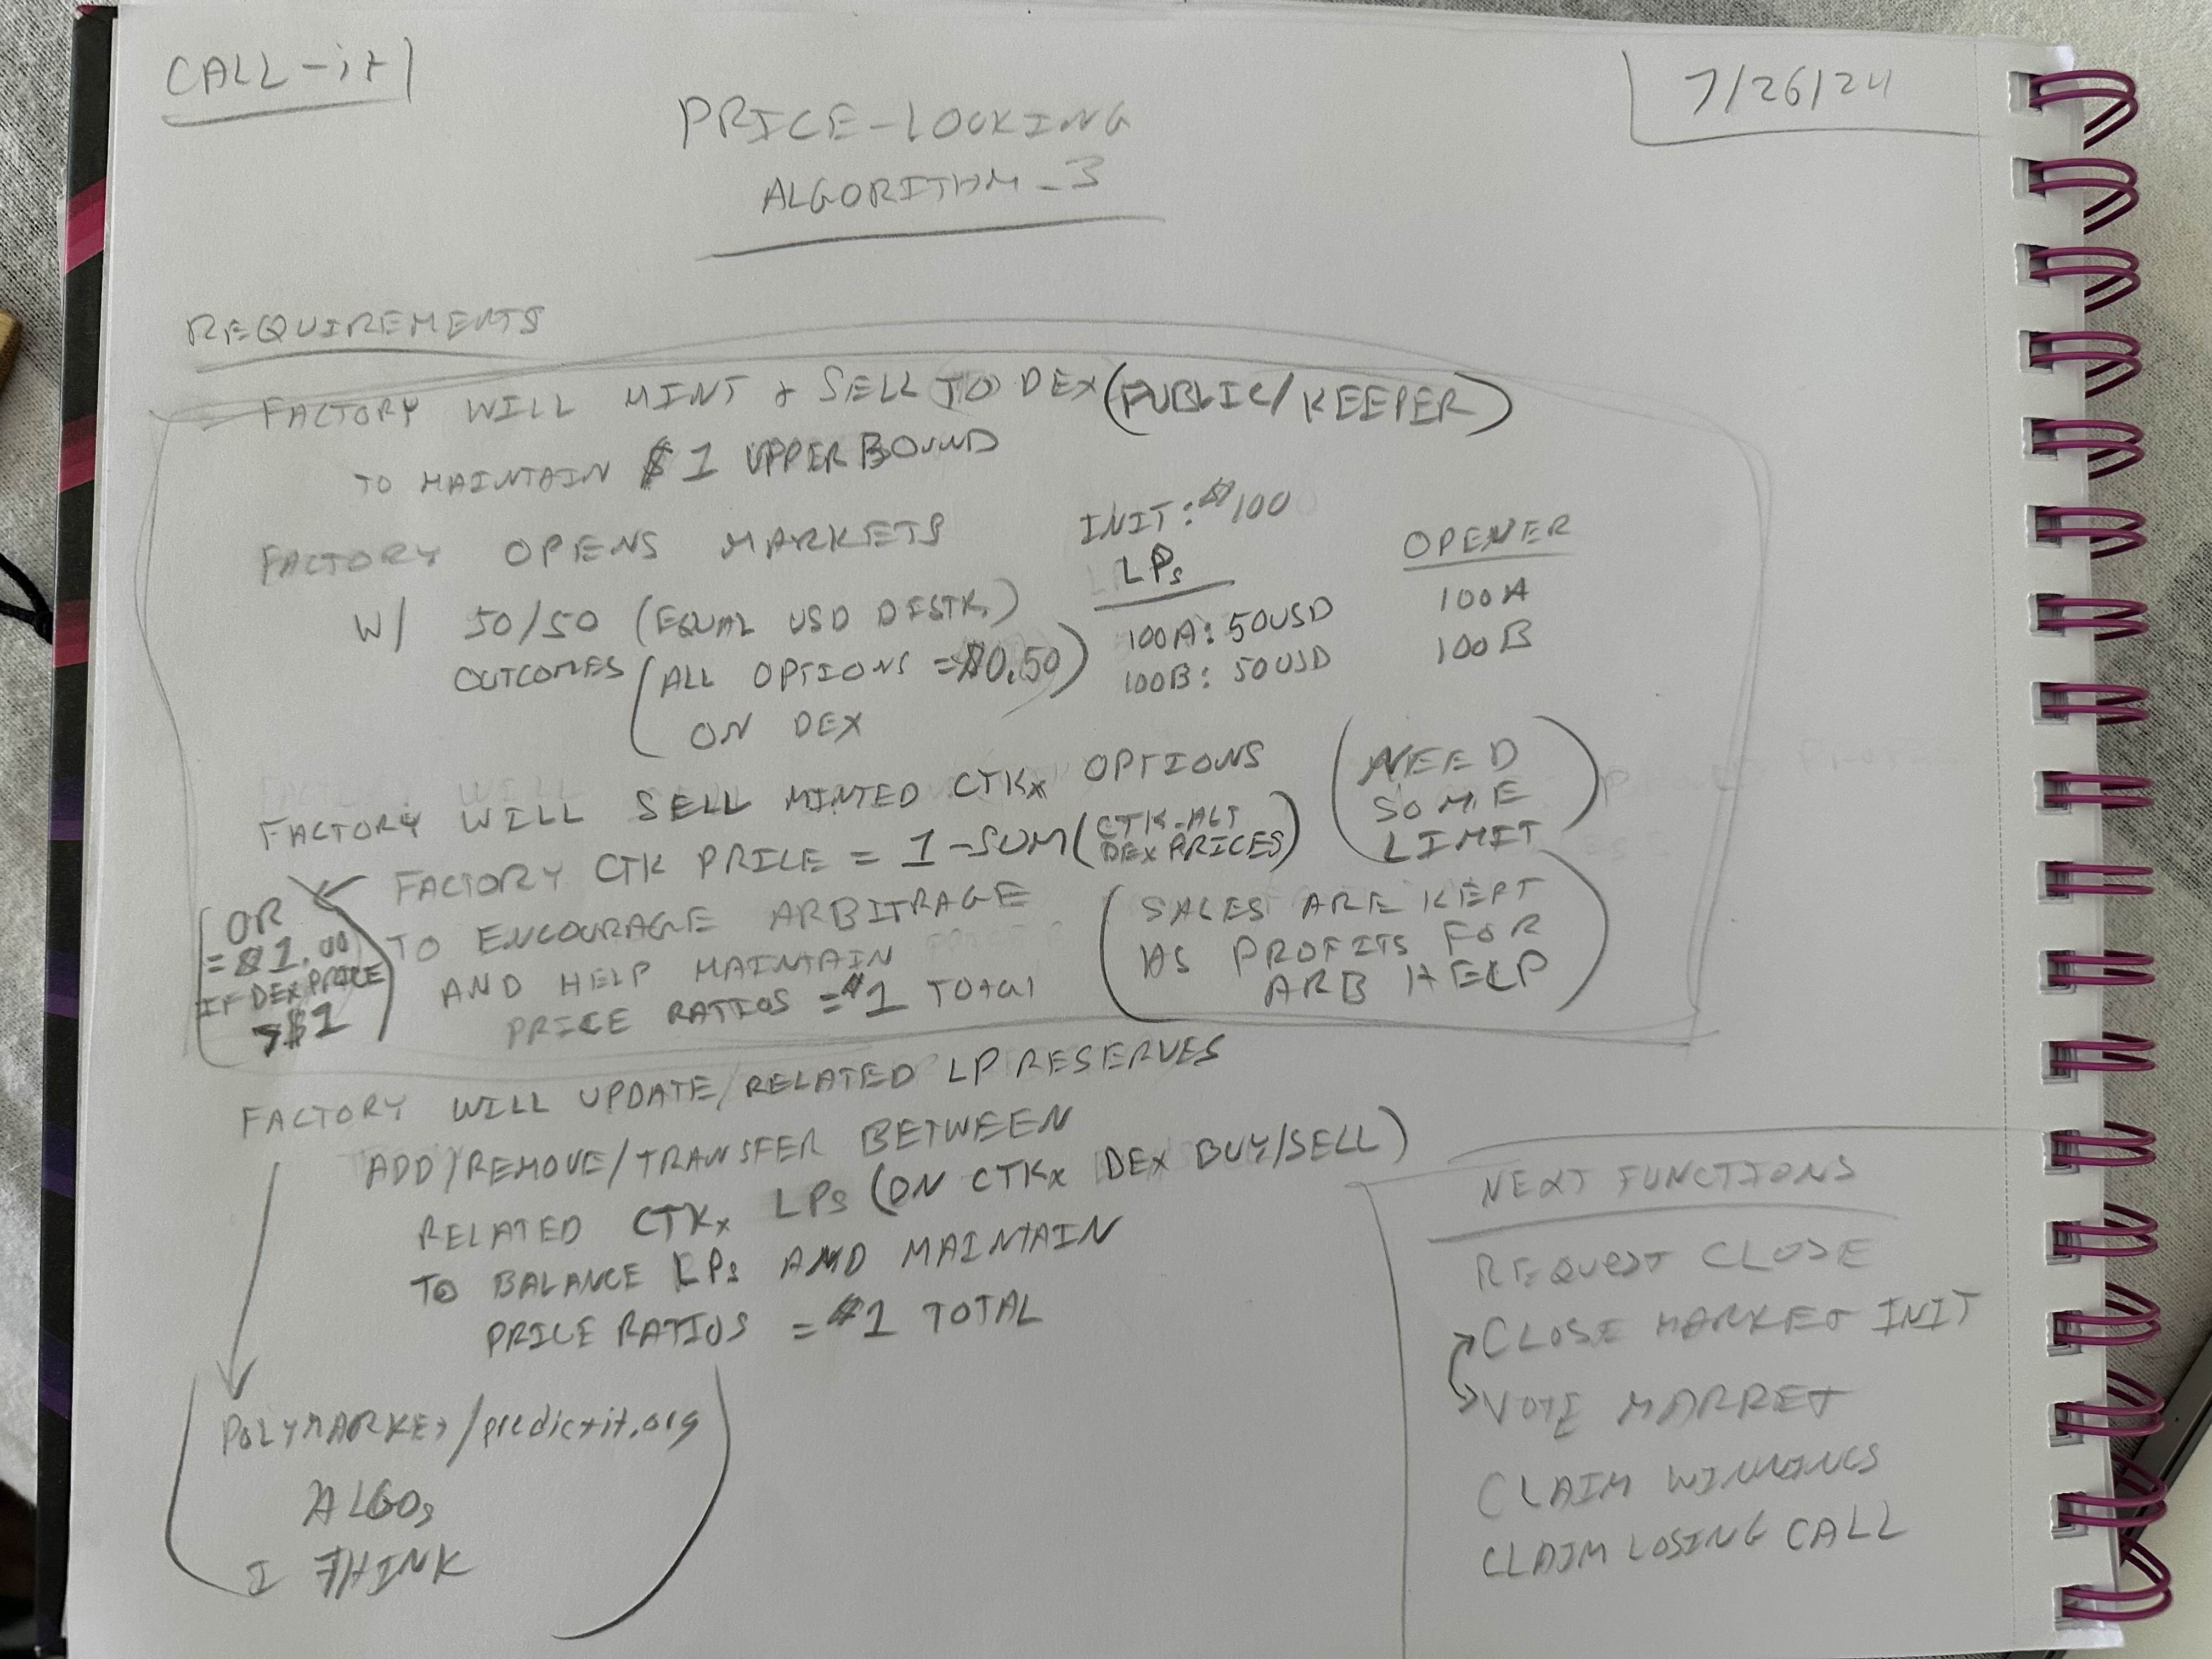 CALL-it
7/26/24
PRICE-LOCKING
ALGORITHM-3
REQUIREMENTS
FACTORY WILL MINT & SELL TO DEX (PUBLIC/KEEPER)
TO MAINTAIN $1 UPPER BOUND
FACTORY OPENS MARKETS
W/ 50/50 (EQUAL USD DISTR.)
OUTCOMES (ALL OPTIONS = $0.50)
ON DEX
INIT: $100
LPs
100A: 50USD
100B: 50USD
OPENER
100A
100B
FACTORY WILL SELL MINTED CTKx OPTIONS
FACTORY CTK PRICE = 1-SUM(CTK-ALT
DEX PRICES)
TO ENCOURAGE ARBITRAGE
AND HELP MAINTAIN
PRICE RATIOS = $1 TOTAL
(NEED
SOME
LIMIT)
(SALES ARE KEPT
AS PROFITS FOR
ARB HELP)
(OR
= $1.00
IF DEX PRICE
>$1)
FACTORY WILL UPDATE/RELATED LP RESERVES
ADD/REMOVE/TRANSFER BETWEEN
RELATED CTKx LPs (ON CTKx DEX BUY/SELL)
TO BALANCE LPs AND MAINTAIN
PRICE RATIOS = $1 TOTAL
(POLYMARKET/predictit.org
ALGOs
I THINK)
NEXT FUNCTIONS
REQUEST CLOSE
CLOSE MARKET INIT
VOTE MARKET
CLAIM WINNINGS
CLAIM LOSING CALL